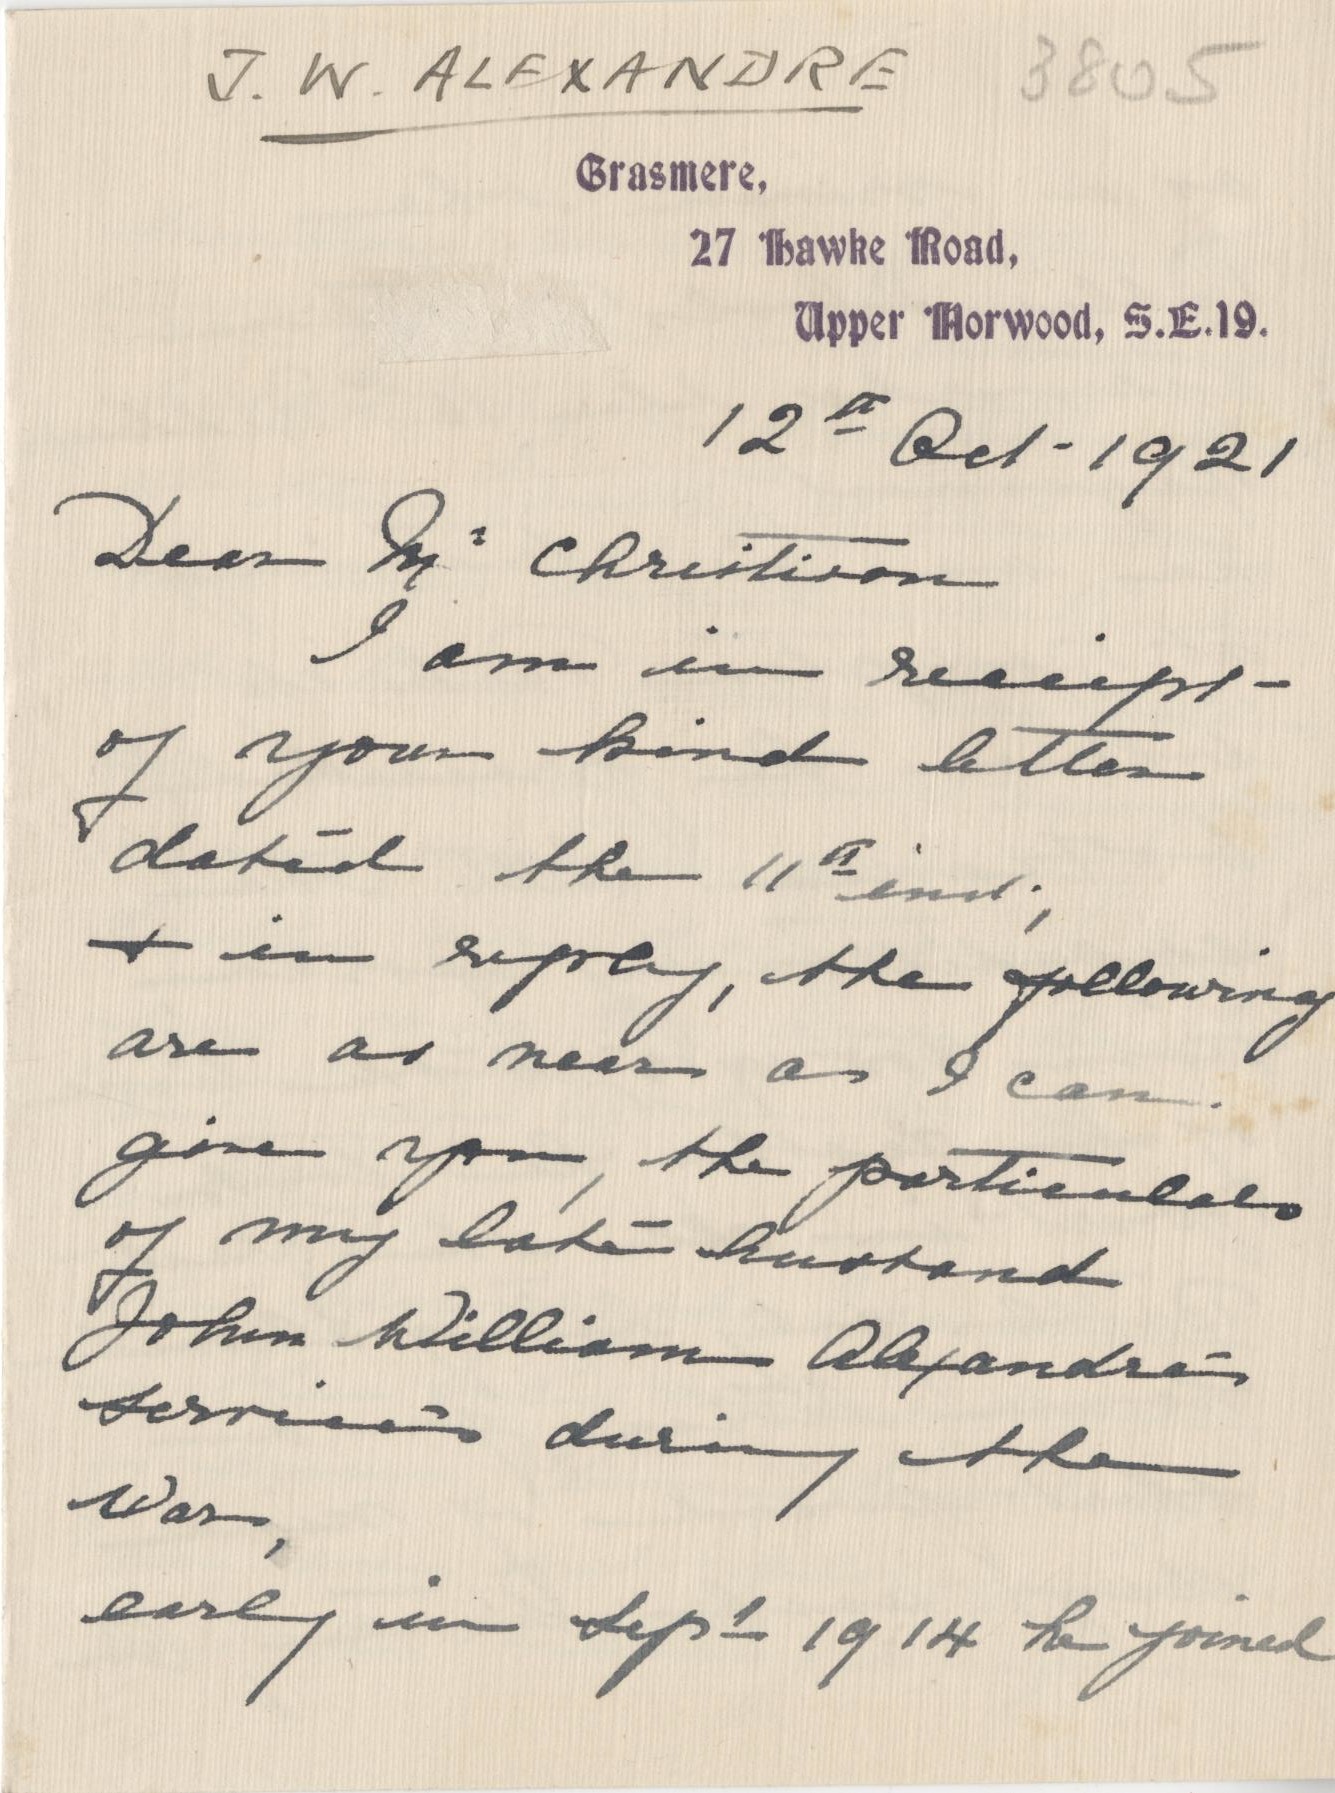 J. W. ALEXANDRE 3805
Grasmere,
27 Hawke Road,
Upper Norwood, S.E.19.
12th Oct - 1921
Dear Mr Christison
I am in receipt
of your kind letter
dated the 11th inst;
+ in reply, the following
are as near as I can.
give you, the particulars
of my late husband
John William Alexandre's
services during the
War,
early in Sept 1914 he joined